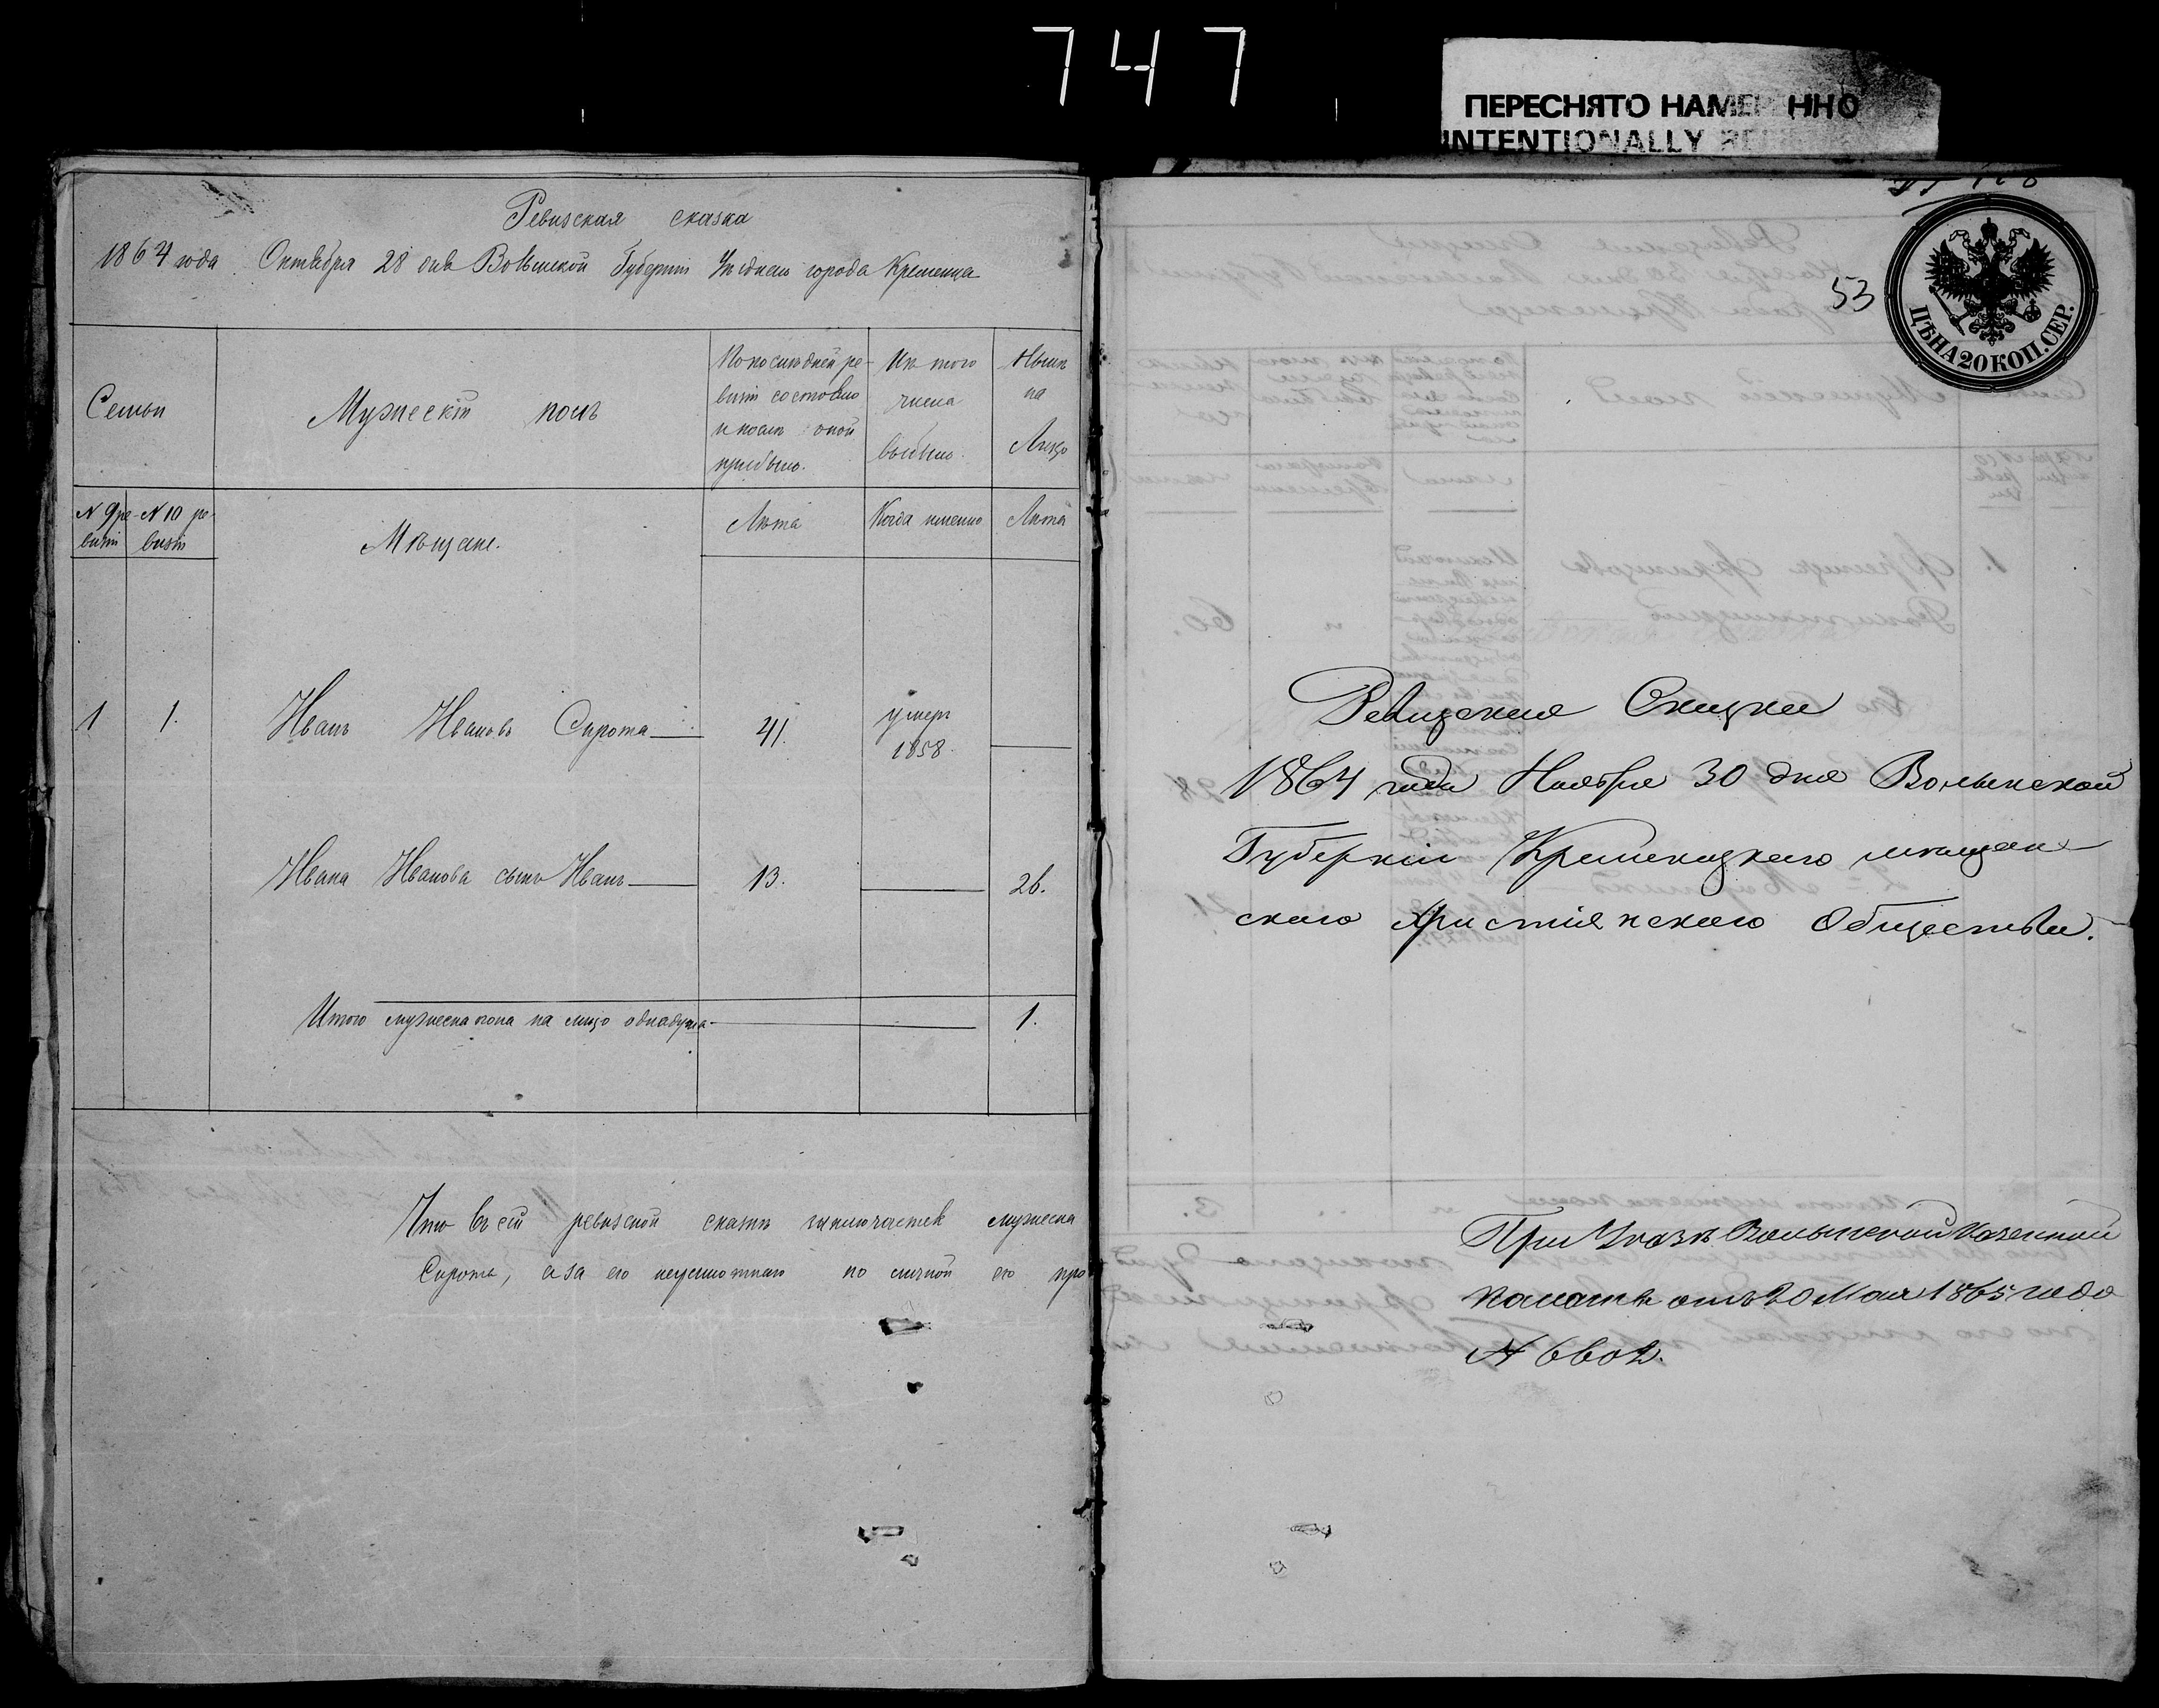 747
ПЕРЕСНЯТО НАМЕРЕННО
INTENTIONALLY
Ревизская сказка
1864 года Октября 28 дня Волынской Губерніи Уѣзднаго города Кременца
Семьи
Мужескій полъ
По послѣдней ре-
визіи состояло
и послѣ оной
прибыло.
Изъ того
числа
выбыло.
Нынѣ
на
Лицо
N 9 ре-
визіи
N 10 ре-
визіи
Мѣщане.
Лѣта
Когда именно
Лѣта
1 1. Иванъ Ивановъ Сирота 41. умеръ
1858.
Ивана Иванова сынъ Иванъ 13. 26.
Итого мужеска пола на лицо одна душа 1.
Что въ сей ревизской сказкѣ мужеска
Сирота, а за его неграмотного по личной его про
53
ЦѢНА 20 КОП. СЕР.
Ревизская Сказка
1864 года Ноября 30 дня Волынской
Губерніи Кременецкаго мѣщан-
скаго Христіянскаго Общества.
При Указѣ Волынской Казенной
Палаты отъ 20 Мая 1865 года
№ 6602.